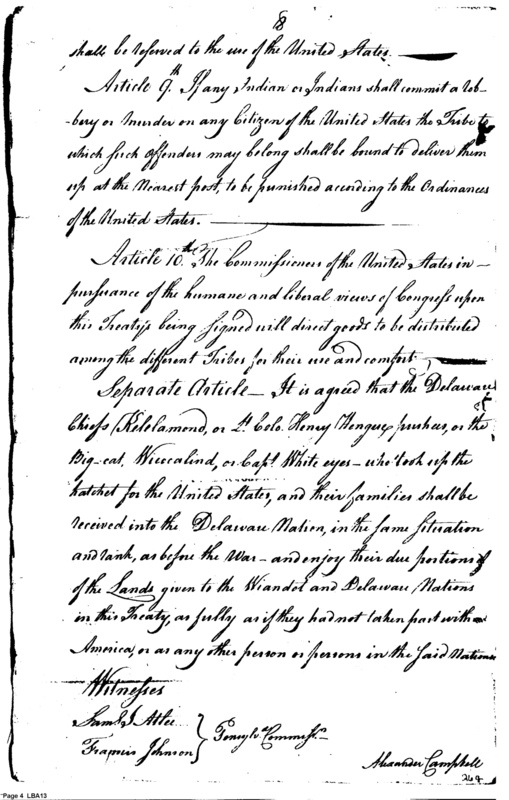 8
shall be reserved to the use of the United States.
Article 9th. If any Indian or Indians shall commit a rob-
-bery or murder on any Citizen of the United States the Tribe to
which such offenders may belong shall be bound to deliver them
up at the nearest post, to be punished according to the Ordinances
of the United States.
Article 10th The Commissioners of the United States in
pursuance of the humane and liberal views of Congress upon
this Treaty's being signed will direct goods to be distributed
among the different Tribes for their use and comfort
Separate Article — It is agreed that the Delaware
Chiefs Kelelamond, or Lt. Colo. Henry Hengue pushees, or the
Big-cat, Wiccalind, or Capt. White eyes — who took up the
hatchet for the United States, and their families shall be
received into the Delaware Nation, in the same situation
and rank, as before the War — and enjoy their due portions
of the Lands given to the Wiandot and Delaware Nations
in this Treaty, as fully as if they had not taken part with
America, or as any other person or persons in the said Nations
Witnesses
Saml. J Atlee
Francis Johnson } Pensyla. Commissrs.
Alexander Campbell
264
Page 4 LBA13